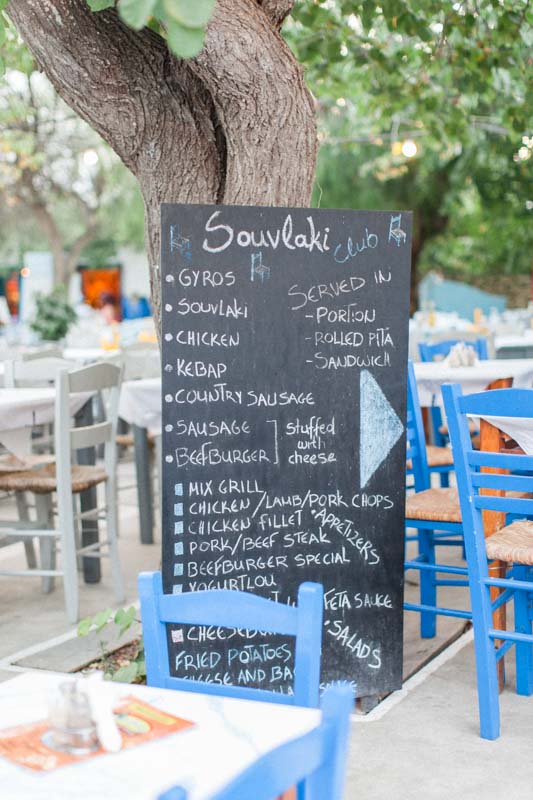 Souvlaki Club
GYROS
SOUVLAKI
CHICKEN
KEBAP
COUNTRY SAUSAGE
SAUSAGE
BEEFBURGER
Stuffed
with
cheese
SERVED IN
- PORTION
- ROLLED PITA
- SANDWICH
MIX GRILL
CHICKEN/LAMB/PORK CHOPS
CHICKEN FILLET
PORK/BEEF STEAK
BEEFBURGER SPECIAL
YOGURTLOU
FETA SAUCE
FRIED POTATOES
CHEESE AND
SAUCE
APPETIZERS
SALADS